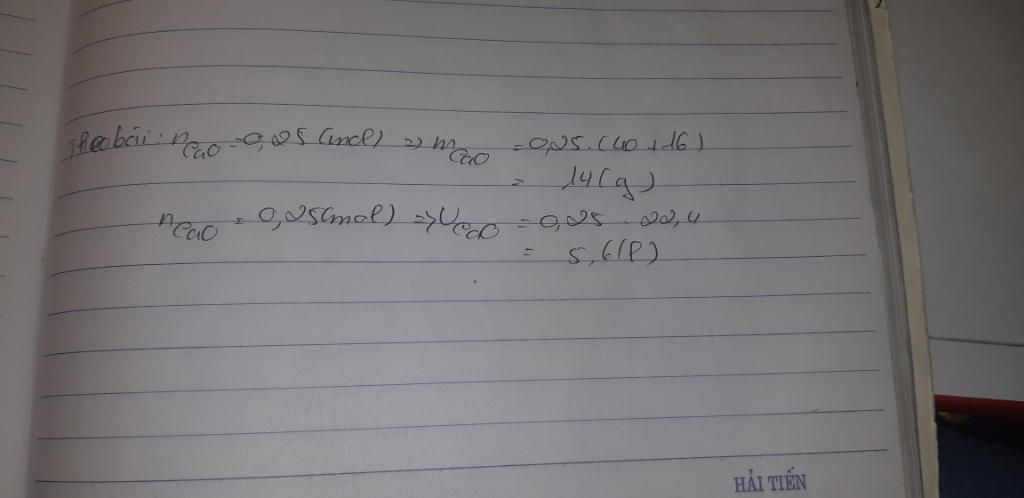 Theo bài: nCaO = 0,25 (mol) => mCaO = 0,25. (40+16)
= 14(g)
nCaO = 0,25(mol) => VCaO = 0,25 . 22,4
= 5,6(l)
HẢI TIẾN